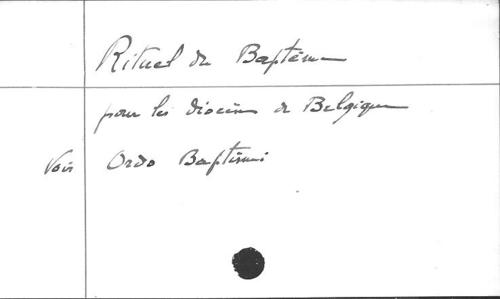 Rituel du Baptême
pour les diocèses de Belgique
Voir Ordo Baptismi